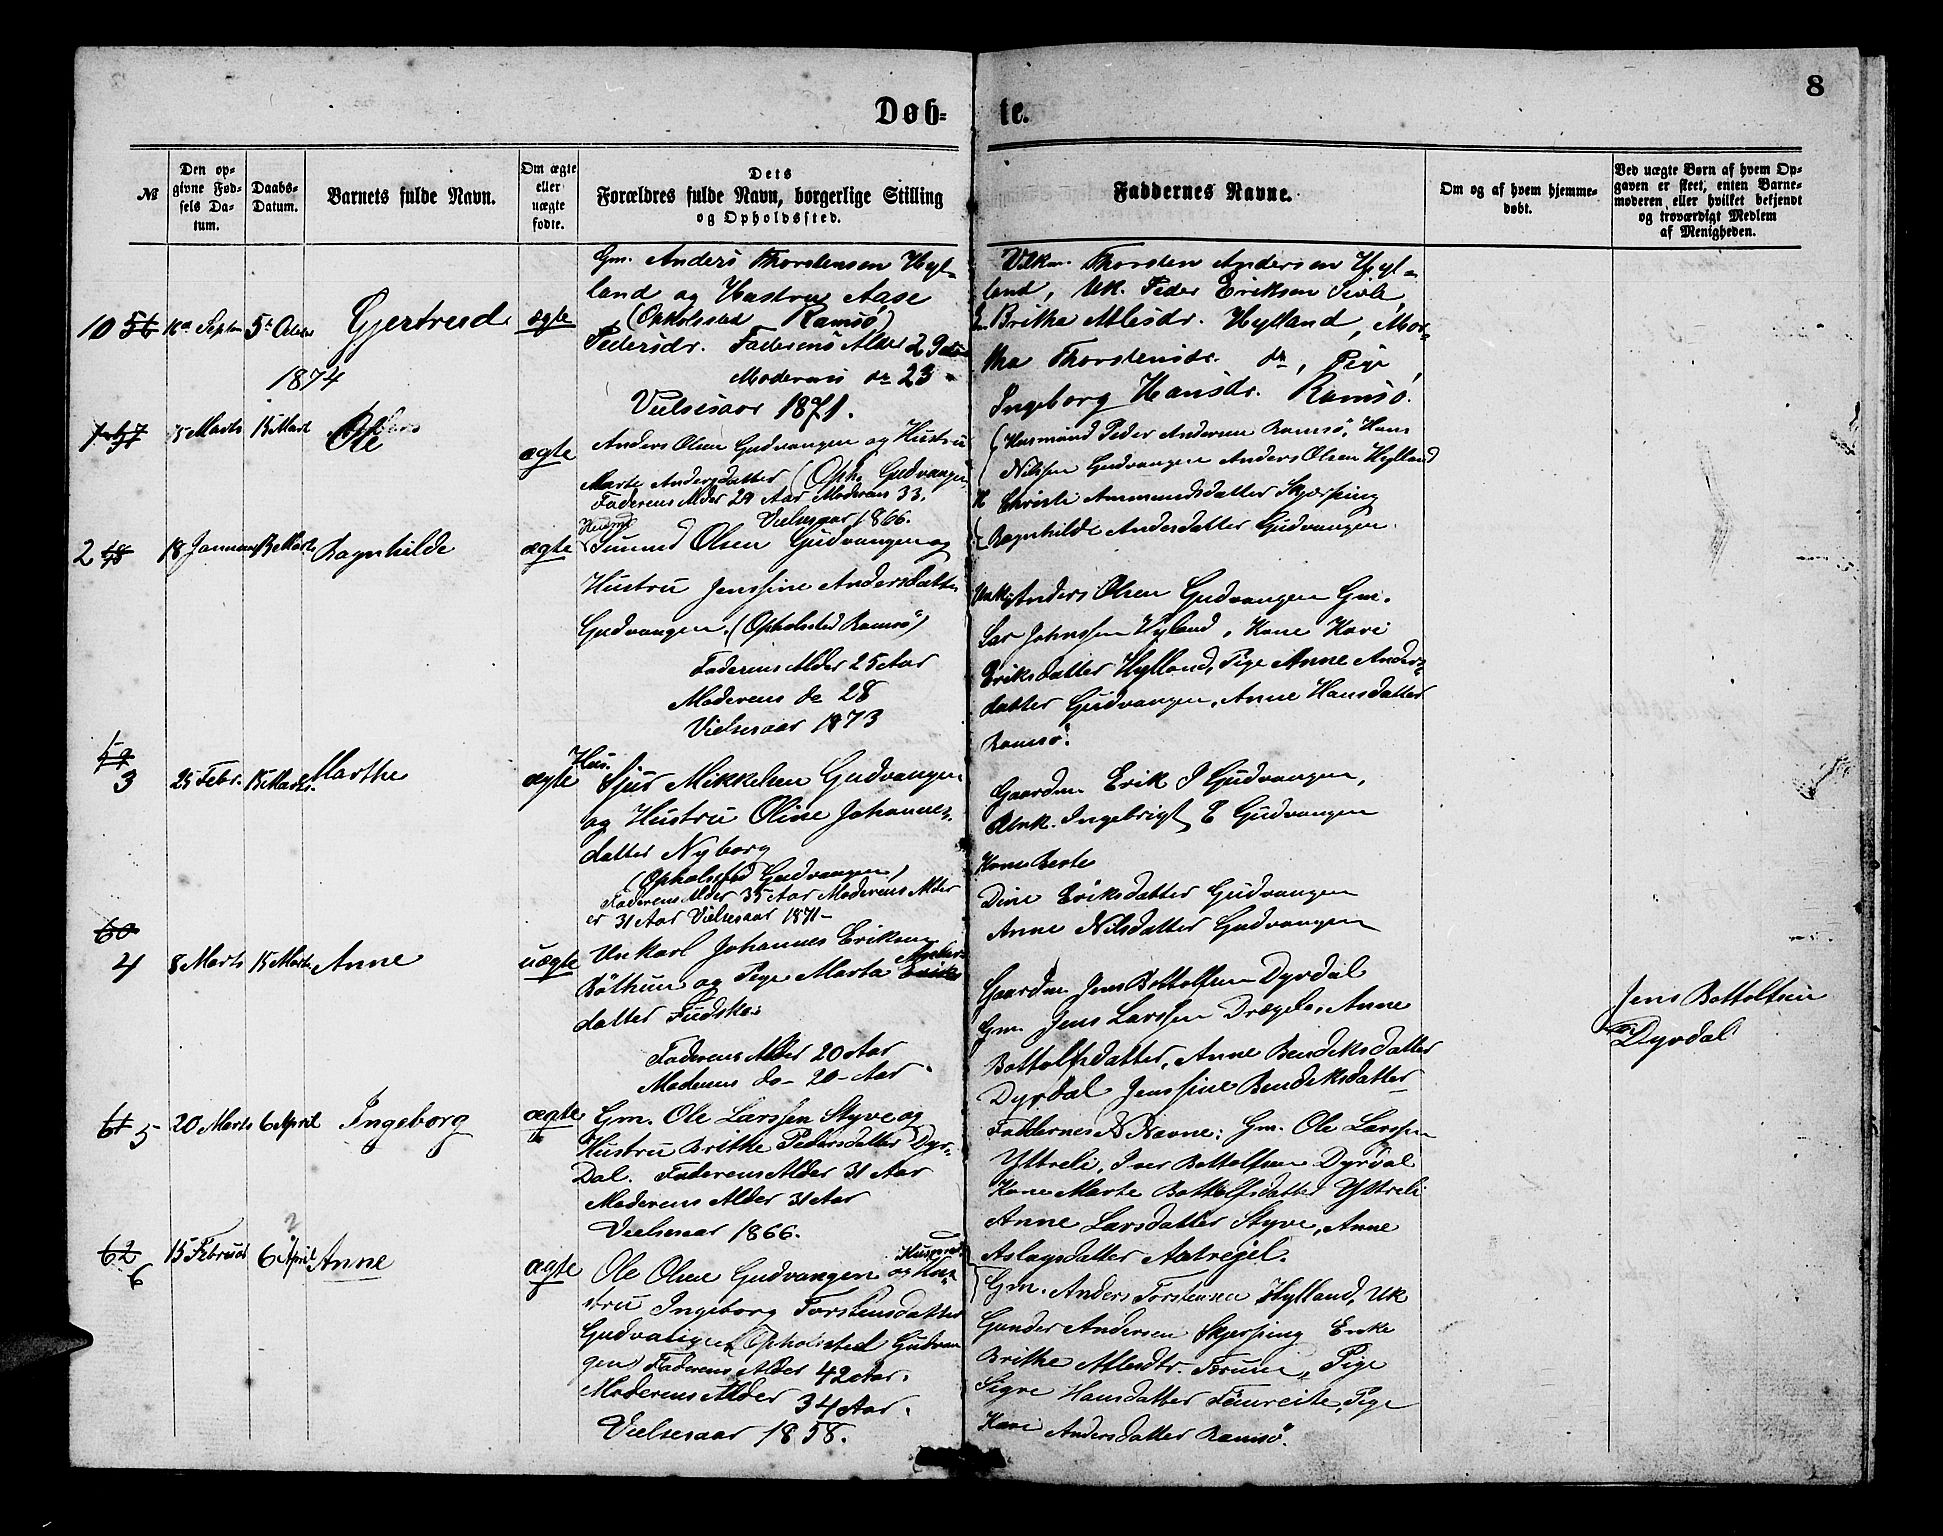 8
Døb-
te.
№
Den op-
givne Fød-
sels Da-
tum.
Daabs-
Datum.
Barnets fulde Navn.
Om ægte
eller
uægte
fødte.
Dets
Forældres fulde Navn, borgerlige Stilling
og Opholdssted.
Faddernes Navne.
Om og af hvem hjemme-
døbt.
Ved uægte Børn af hvem Op-
gaven er skeet, enten Barne-
moderen eller hvilket bekjendt
og troværdigt Medlem
af Menigheden.
10 56
5te
Gjertrud
ægte
Gm. Anders Thorstensen Hyl-
land og Hustru Aase
(Opholssted Ramsö)
Pedersdr. Faderens Alder 29
Moderens do 23
Vielsesaar 1871.
Thorsten Andersen Hyl-
land, Uk. Peder Eriksen
Britha Atlesdr. Hylland, Mar-
tha Thorstensdr. do, Pige
Ingeborg Hansdr. Ramsö.
1874
1 57
5 Marts
15 Marts
Ole
ægte
Anders Olsen Gudvangen og Hustru
Marte Andersdatter (Oph. Gudvangen
Faderens Alder 29 Aar Moderens 33.
Vielsesaar 1866.
Husmand Peder Andersen Ramsö, Hans
Nilssen Gudvangen Anders Olsen Hylland
Christi Ammundsdatter Skjerping
Ragnhilde Andersdatter Gudvangen.
2 58
18 Januar
15 Marts
Ragnhilde
ægte
Husmd
Olsen Gudvangen og
Hustru Jenssine Andersdatter
Gudvangen. (Opholssted Ramsö)
Faderens Alder 25 Aar
Moderens do 28
Vielsesaar 1873
Unk. Anders Olsen Gudvangen Gm.
Lar Johnssen Hyland, Kone Kari
Eriksdatter Hylland, Pige Anne Anders-
datter Gudvangen, Anne Hansdatter
Ramsö.
59
3
25 Febr.
15 Marts.
Marthe
ægte
Hus.
Sjur Mikkelsen Gudvangen
og Hustru Oline Johannes-
datter Nyborg
(Opholssted Gudvangen)
Faderens Alder 35 Aar Moderens Alder
er 31 Aar Vielsesaar 1871-
Gaardm. Erik I Gudvangen,
Unk. Ingebrigt E Gudvangen
Kone Berte
Dine Eriksdatter Gudvangen
Anne Nilsdatter Gudvangen
60
4
8 Marts
15 Marts
Anne
uægte
Unkarl Johannes Eriksen
Böthun og Pige Marta Anders
datter Fudske.
Faderens Alder 20 Aar
Moderens do- 20- Aar.
Gaardm. Jens Bottolfsen Dyrdal
Gm. Jens Larssen Drægele, Anne
Bottolfsdatter, Anne Bendiksdatter
Dyrdal Jenssine Bendiksdatter
Jens Bottolfsen
Dyrdal
61 5
20 Marts
6 April
Ingeborg
ægte
Gm. Ole Larssen Styve og
Hustru Brithe Pedersdatter Dyr-
Dal. Faderens Alder 31 Aar
Moderens Alder 31 Aar
Vielsesaar 1866.
Faddernes Navne: Gm. Ole Larssen
Yttreli, Iver Bottolfsen Dyrdal
Kone Marte Bottolfsdatter Yttreli
Anne Larsdatter Styve, Anne
Aslagsdatter
62
6
15 Februar
6 April
Anne
ægte
Ole Olsen Gudvangen og Hus-
stru Ingeborg Torstensdatter
Gudvangen (Opholssted Gudvan
gen) Faderens Alder 42 Aar.
Moderens Alder 34 Aar.
Vielsesaar 1858.
Gm. Anders Torstensen Hylland, Uk
Gunder Andersen Skjerping Enke
Brithe Atlesdtr. Pige
Sigre Hansdatter Pige
Kari Andersdatter Ramsö.